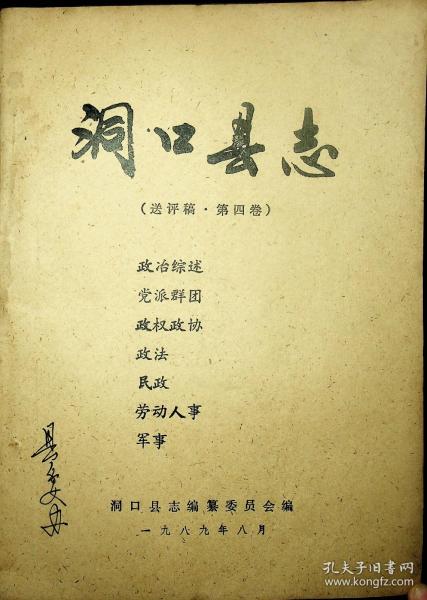 洞口县志
(送评稿·第四卷)
政治综述
党派群团
政权政协
政法
民政
劳动人事
军事
县委办
洞口县志编纂委员会编
一九八九年八月
孔夫子旧书网
www.kongfz.com